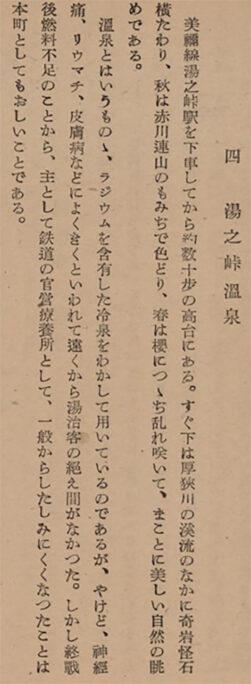 四 湯之峠溫泉
美禰線湯之峠驛を下車してから約数十步の高台にある。すぐ下は厚狹川の溪流のなかに奇岩怪石
橫たわり、秋は赤川連山のもみぢで色どり、春は櫻につゝぢ乱れ咲いて、まことに美しい自然の眺
めである。
溫泉とはいうものゝ、ラジウムを含有した冷泉をわかして用いているのであるが、やけど、神經
痛、リウマチ、皮膚病などによくきくといわれて遠くから湯治客の絕え間がなかつた。しかし終戰
後燃料不足のことから、主として鉄道の官営療養所として、一般からしたしみにくくなつたことは
本町としてもおしいことである。